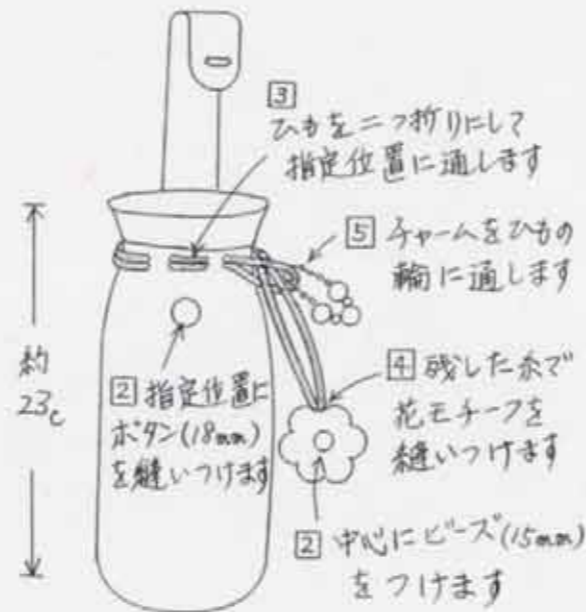 3
ひもを二つ折りにして
指定位置に通します
5 チャームをひもの
輪に通します
約
23c
2 指定位置に
ボタン(18mm)
を縫いつけます
4 残した糸で
花モチーフを
縫いつけます
2 中心にビーズ(15mm)
をつけます